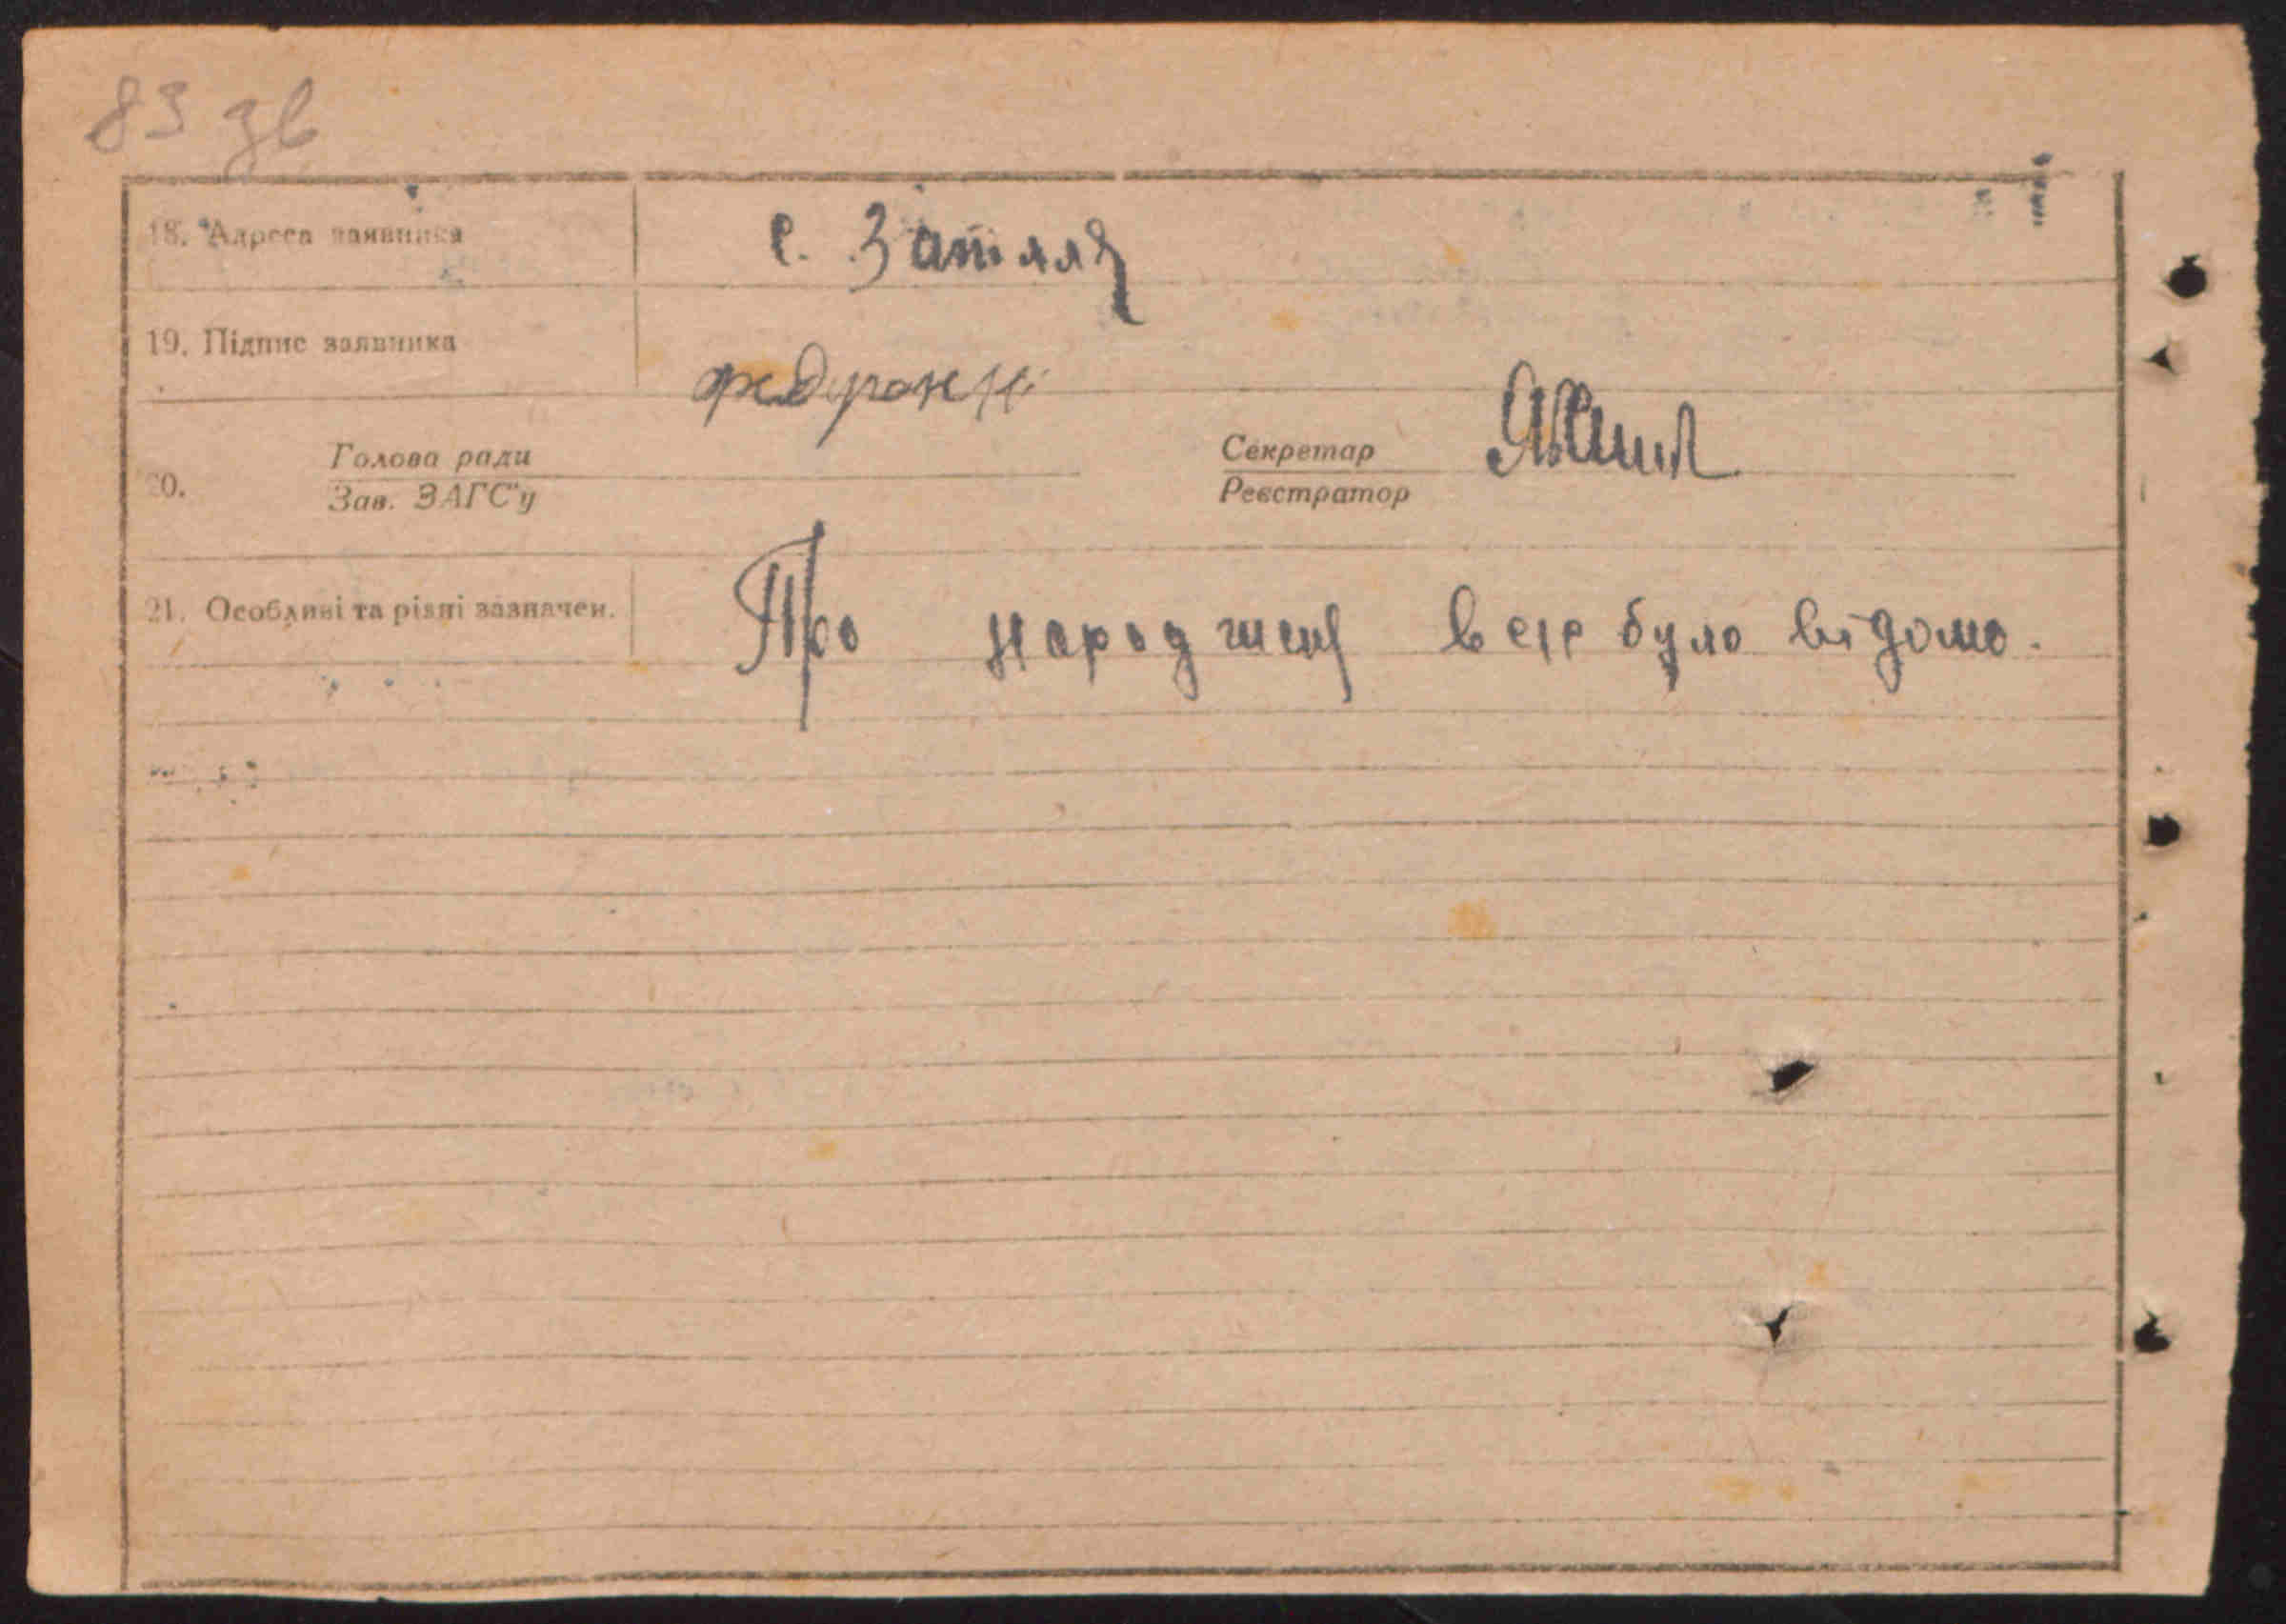 83 зв
18. Адреса заявника с. Затилля
19. Підпис заявника
20. Голова ради Секретар
Зав. ЗАГС'у Реєстратор
21. Особливі та різні зазначен. Про народженя всiе було відомо.